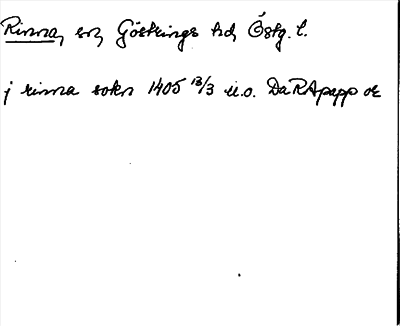 Rinna, sn, Göstrings hd, Östg. l.
j rinna sokn 1405 13/3 u.o. DaRApapp or